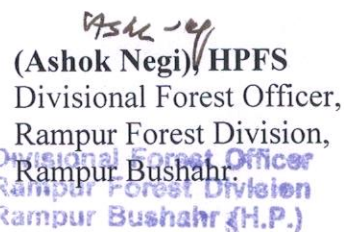 Ashk neg
(Ashok Negi), HPFS
Divisional Forest Officer,
Rampur Forest Division,
Rampur Bushahr.
Divisional Forest Officer
Rampur Forest Division
Rampur Bushahr (H.P.)